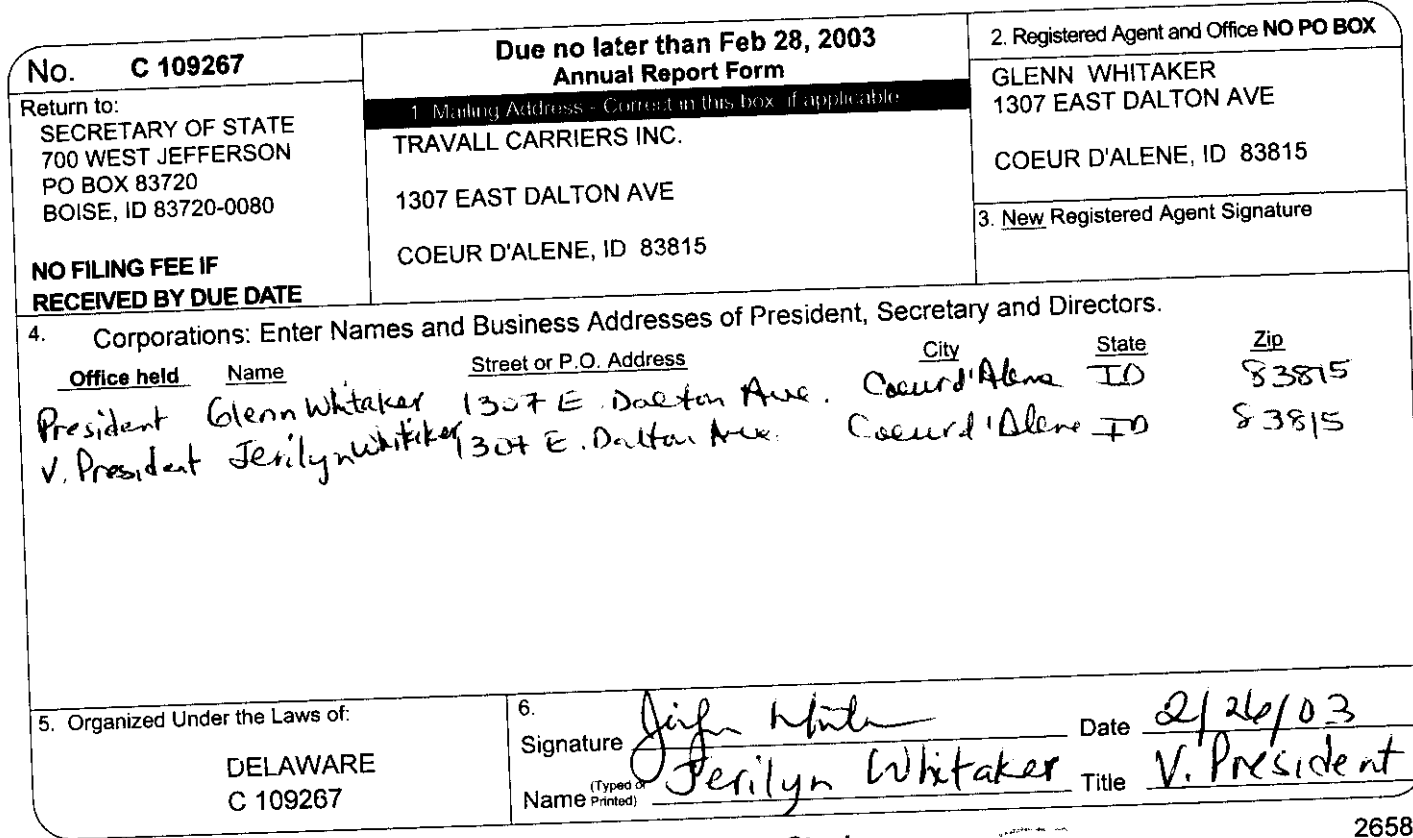 No. C 109267
Return to:
SECRETARY OF STATE
700 WEST JEFFERSON
PO BOX 83720
BOISE, ID 83720-0080
NO FILING FEE IF
RECEIVED BY DUE DATE
Due no later than Feb 28, 2003
Annual Report Form
1. Mailing Address - Correct in this box if applicable
TRAVALL CARRIERS INC.
1307 EAST DALTON AVE
COEUR D'ALENE, ID 83815
2. Registered Agent and Office NO PO BOX
GLENN WHITAKER
1307 EAST DALTON AVE
COEUR D'ALENE, ID 83815
3. New Registered Agent Signature
4. Corporations: Enter Names and Business Addresses of President, Secretary and Directors.
Office held Name Street or P.O. Address City State Zip
President Glenn Whitaker 1307 E. Dalton Ave. Coeur d'Alene ID 83815
V. President Jerilyn Whitiker 1307 E. Dalton Ave. Coeur d'Alene ID 83815
5. Organized Under the Laws of:
DELAWARE
C 109267
6.
Signature Date 2/26/03
Name (Typed or Printed) Jerilyn Whitaker Title V. President
2658